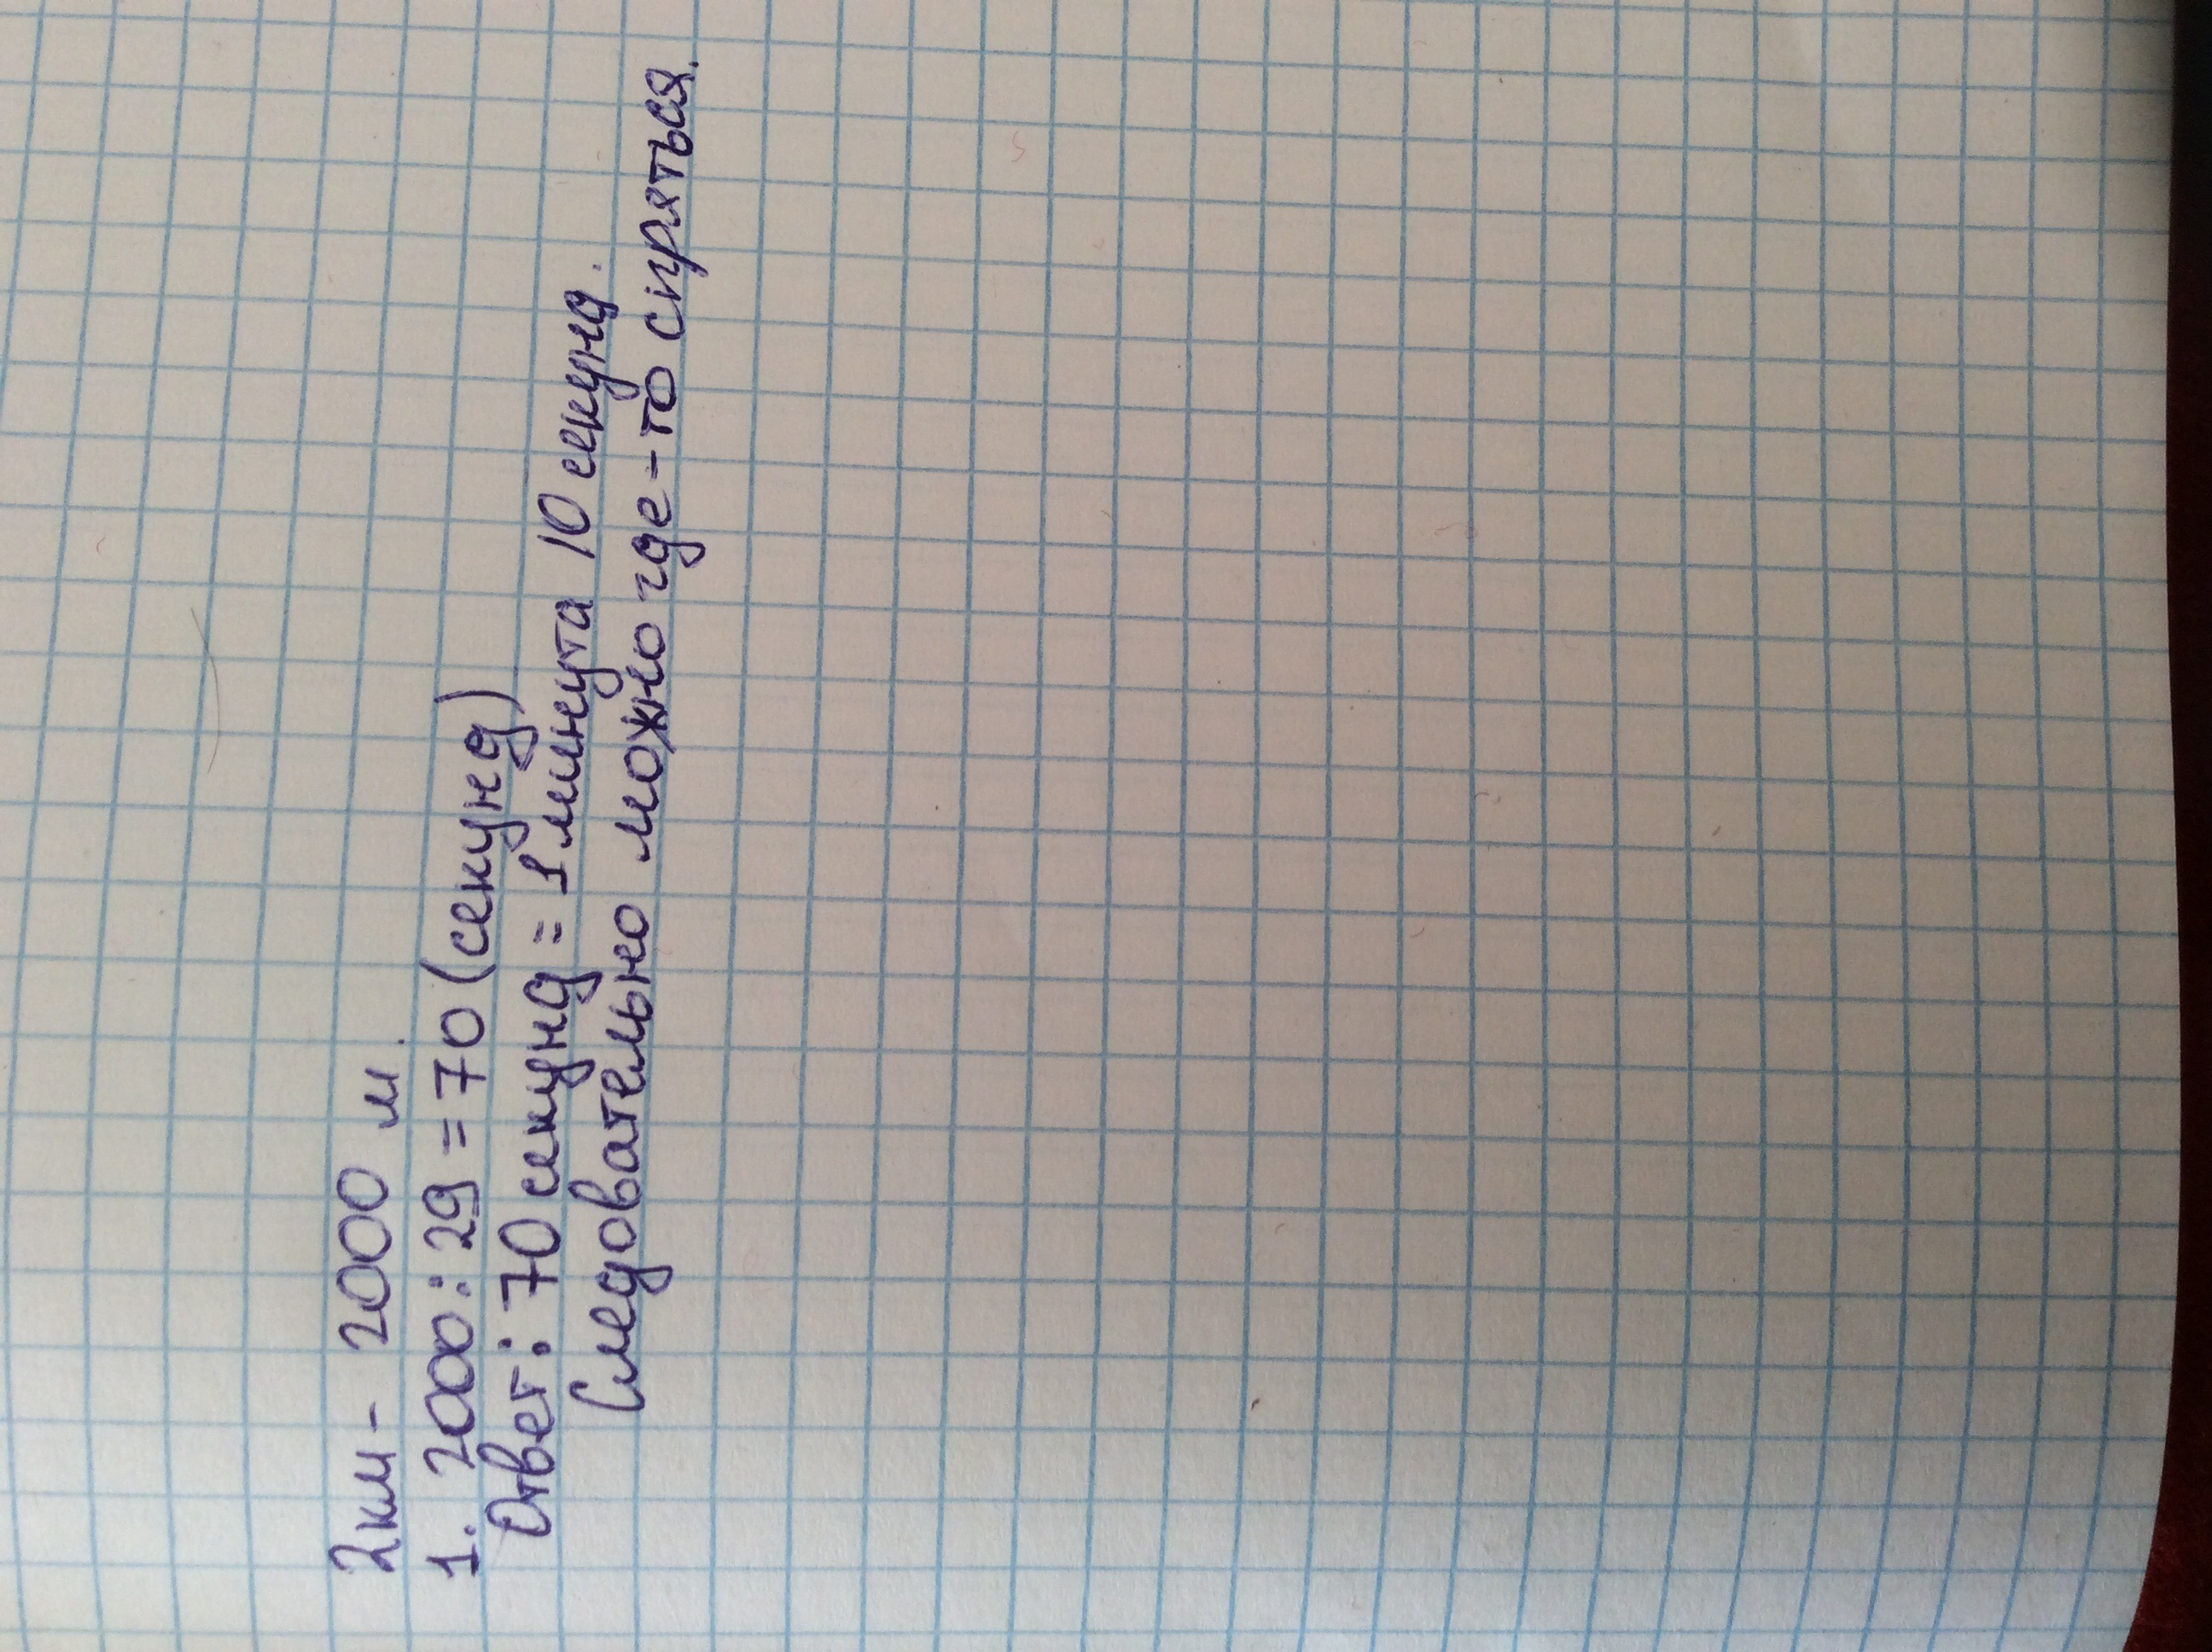 2км - 2000 м.
1. 2000 : 29 = 70 (секунд)
Ответ: 70 секунд = 1 минута 10 секунд.
Следовательно можно где-то спряться.